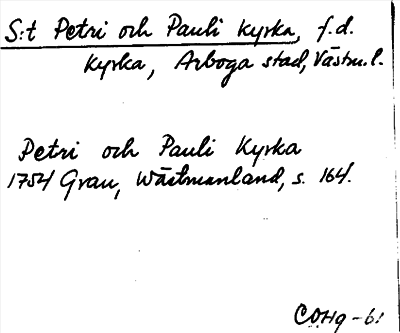 S:t Petri och Pauli kyrka, f.d.
kyrka, Arboga stad, Västm.l.
Petri och Pauli Kyrka
1754 Grau, Wästmanland, s. 164.